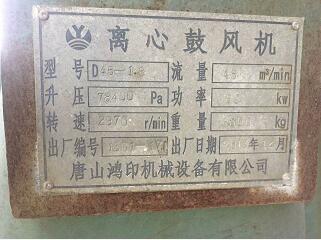 离心鼓风机
型号 D45-1.8 流量 45 m³/min
升压 78400 Pa 功率 kw
转速 2970 r/min 重量 kg
出厂编号 出厂日期 年 月
唐山鸿印机械设备有限公司